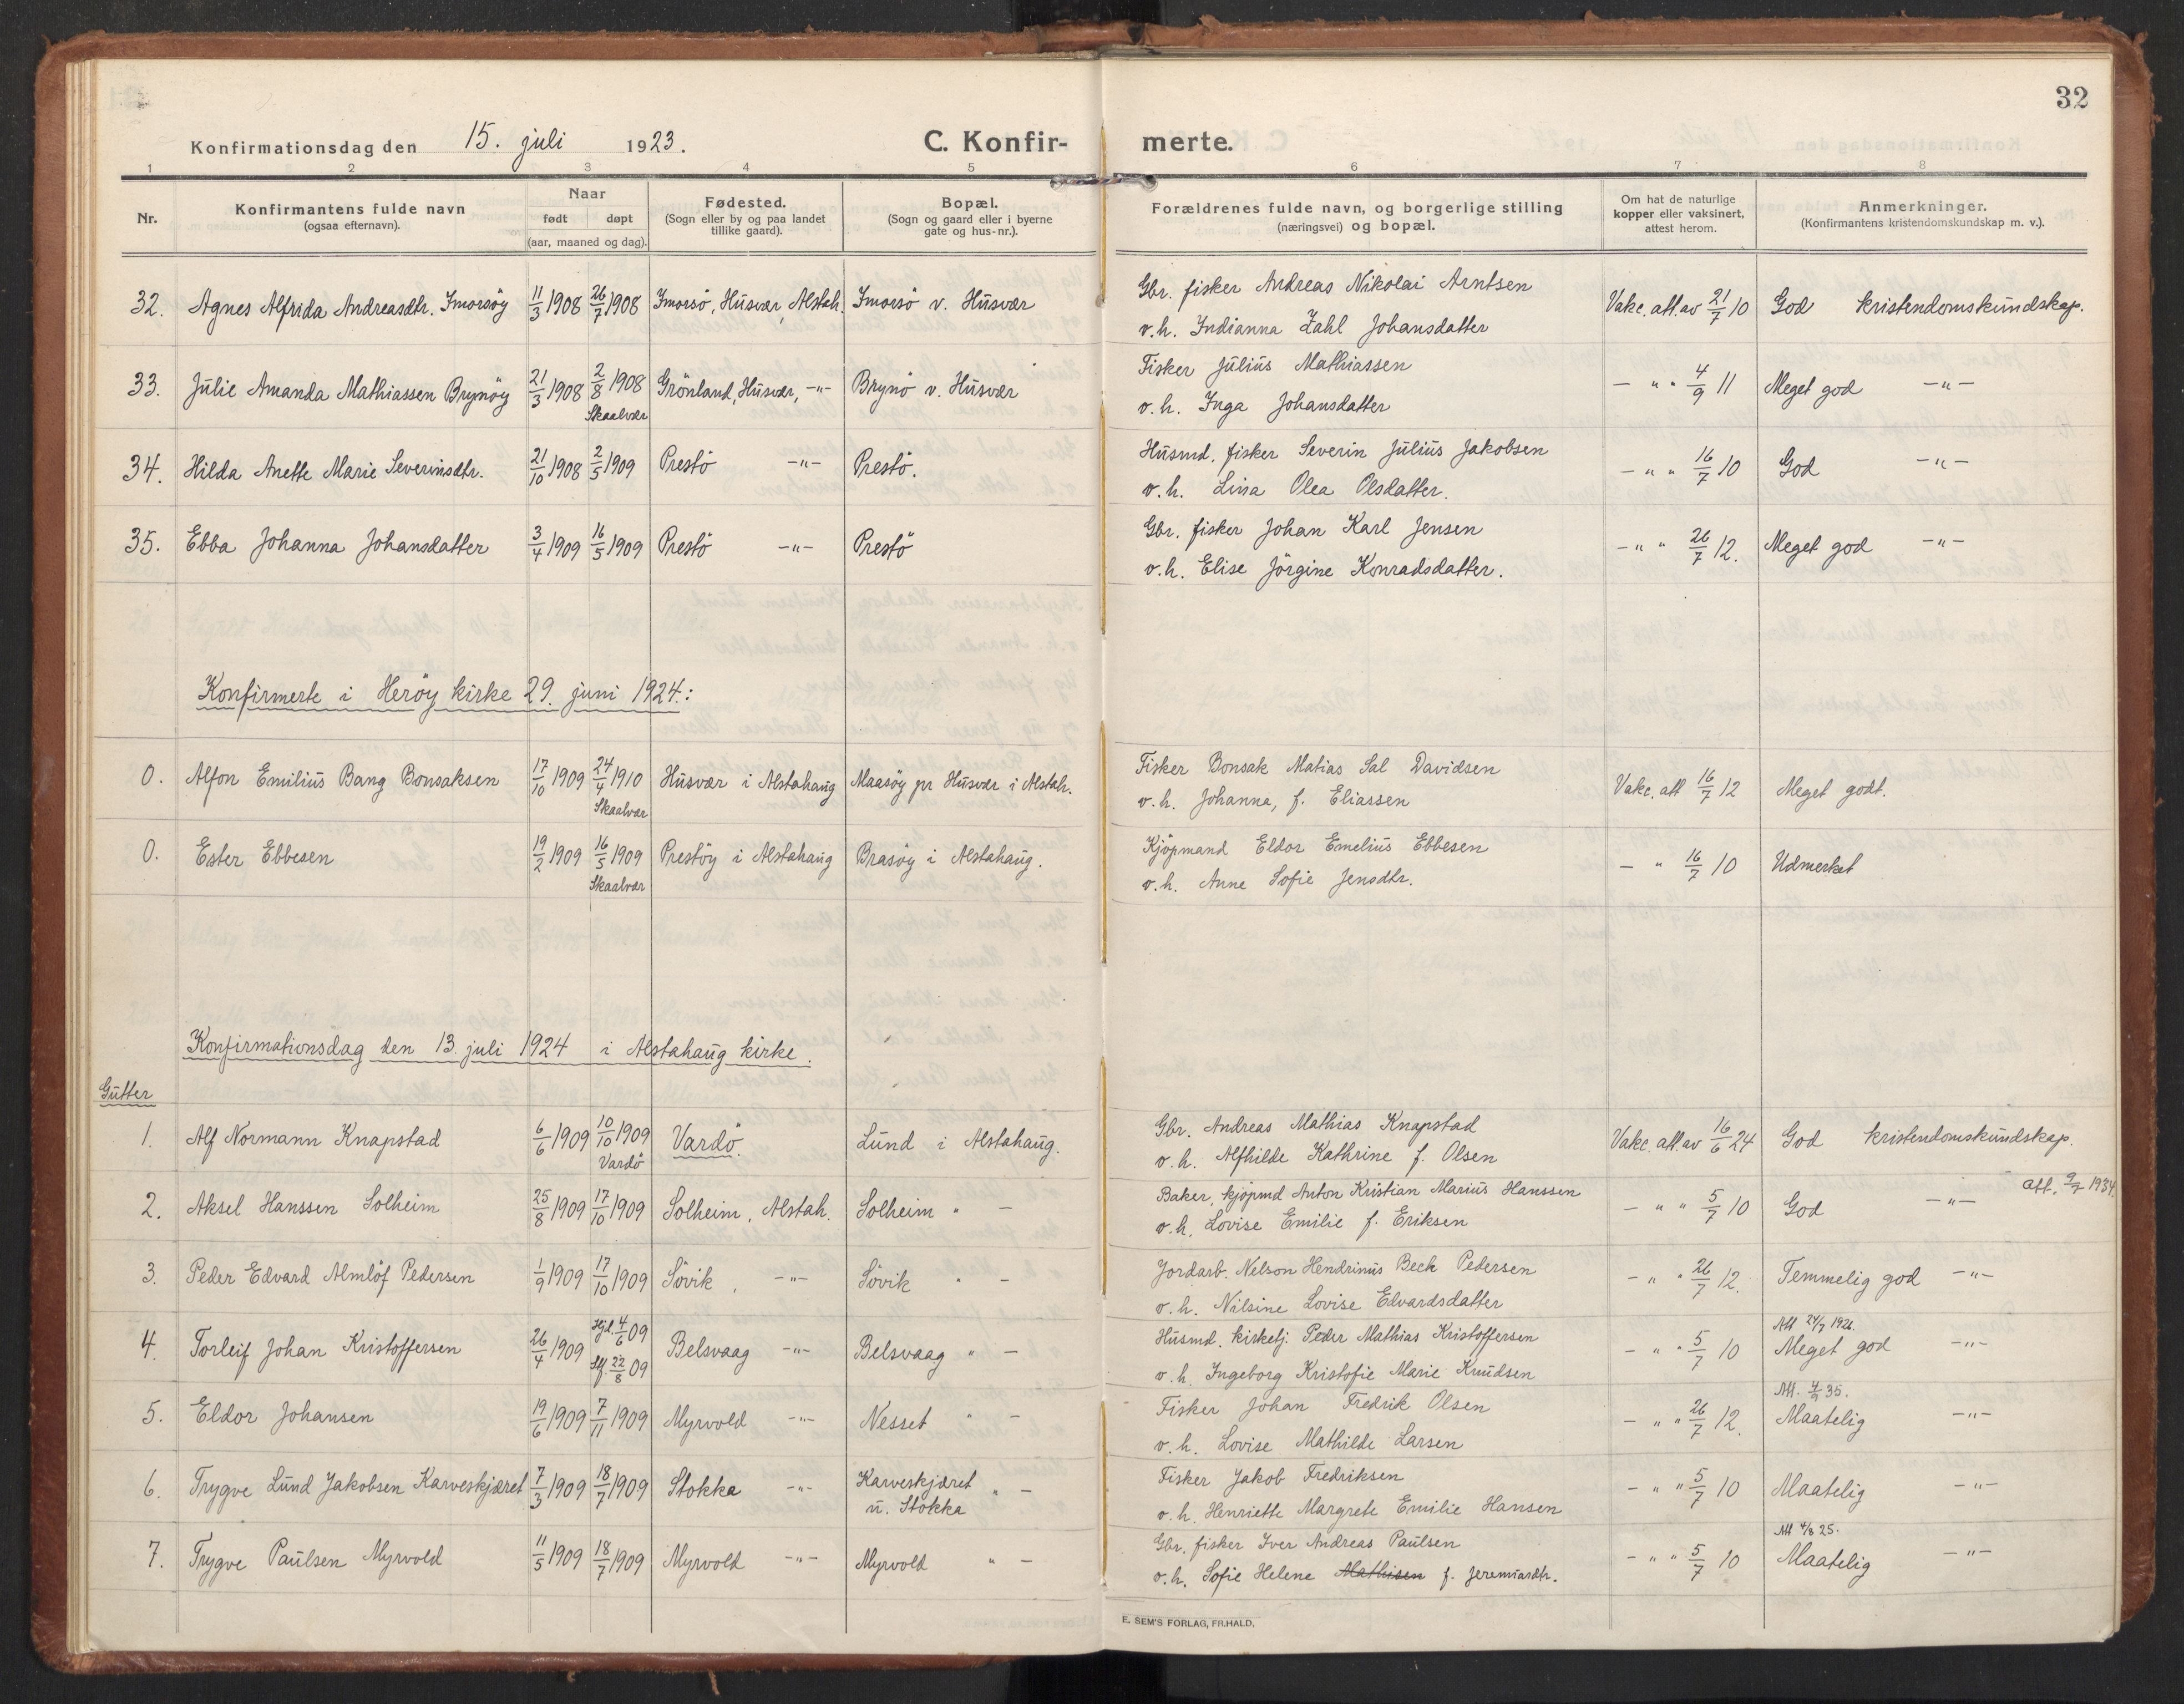 32
Konfirmationsdag den 15. juli 1923. C. Konfirmerte.
1 2 3 4 5 6 7 8
Nr. Konfirmantens fulde navn (ogsaa efternavn). Naar født døpt (aar, maaned og dag). Fødested. (Sogn eller by og paa landet tillike gaard). Bopæl. (Sogn og gaard eller i byerne gate og hus-nr.). Forældrenes fulde navn, og borgerlige stilling (næringsvei) og bopæl. Om hat de naturlige kopper eller vaksinert, attest herom. Anmerkninger. (Konfirmantens kristendomskundskap m. v.).
32. Agnes Alfrida Andreasdtr. Imorsöy 11/3 1908 26/7 1908 Imorsö, Husvær, Alstah. Imorsö v. Husvær Gbr. fisker Andreas Nikolai Arntsen Vakc. att. av 21/7 10 God kristendomskundskap.
v. h. Indianna Zahl Johansdatter
33. Julie Amanda Mathiassen Brynöy 21/3 1908 2/8 1908 Skaalvær Grönland, Husvær, -"- Brynö v. Husvær Fisker Julius Mathiassen - " " 4/9 11 Meget god -"-
v. h. Inga Johansdatter
34. Hilda Anette Marie Severinsdtr. 21/10 1908 2/5 1909 Prestö -"- Prestö. Husmd. fisker Severin Julius Jakobsen - " " 16/7 10 God -"-
v. h. Lina Olea Olsdatter.
35. Ebba Johanna Johansdatter 3/4 1909 16/5 1909 Prestö -"- Prestö Gbr. fisker Johan Karl Jensen - " " 26/7 12. Meget god -"-
v. h. Elise Jörgine Konradsdatter.
Konfirmerte i Heröy kirke 29. juni 1924.:
0. Alfon Emilius Bang Bonsaksen 17/10 1909 24/4 1910 Skaalvær Husvær i Alstahaug Maasöy pr Husvær i Alstah. Fisker Bonsak Matias Sal Davidsen Vakc. att 16/7 12 Meget godt.
v. h. Johanna, f. Eliassen
0. Ester Ebbesen 19/2 1909 16/5 1909 Skaalvær Prestöy i Alstahaug Brasöy i Alstahaug. Kjöpmand Eldor Emelius Ebbesen - " 16/7 10 Udmerket
v. h. Anne Sofie Jensdtr.
Konfirmationsdag den 13. juli 1924 i Alstahaug kirke.
Gutter
1. Alf Normann Knapstad 6/6 1909 10/10 1909 Vardö Vardö. Lund i Alstahaug. Gbr. Andreas Mathias Knapstad Vakc. att. av 16/6 24 God kristendomskundskap.
v. h. Alfhilde Kathrine f. Olsen
2. Aksel Hanssen Solheim 25/8 1909 17/10 1909 Solheim, Alstah. Solheim " - Baker, kjöpmd Anton Kristian Marius Hanssen - " " 5/7 10 God -"- att. 9/7 1934.
v. h. Lovise Emilie f. Eriksen
3. Peder Edvard Almlöf Pedersen 1/9 1909 17/10 1909 Sövik, -"- Sövik " - Jordarb. Nelson Hendrinus Beck Pedersen - " " 26/7 12. Temmelig god -"-
v. h. Nilsine Lovise Edvardsdatter
4. Torleif Johan Kristoffersen 26/4 1909 Hjd. 4/6 09 Stf. 22/8 09 Belsvaag -"- Belsvaag " - Husmd. kirketj. Peder Mathias Kristoffersen - " " 5/7 10 Att 24/7 1926. Meget god -"-
v. h. Ingeborg Kristofie Marie Knudsen
5. Eldor Johansen 19/6 1909 7/11 1909 Myrvold -"- Nesset " - Fisker Johan Fredrik Olsen - " " 26/7 12. Att. 4/9 35. Maatelig -"-
v. h. Lovise Mathilde Larsen
6. Trygve Lund Jakobsen Karveskjæret 7/3 1909 18/7 1909 Stokka -"- Karveskjæret u. Stokka " - Fisker Jakob Fredriksen - " " 5/7 10 Maatelig -"-
v. h. Henriette Margrete Emilie Hansen
7. Trygve Paulsen Myrvold 11/5 1909 18/7 1909 Myrvold -"- Myrvold " - Gbr. fisker Iver Andreas Paulsen - " " 5/7 10 Att 4/8 25. Maatelig -"-
v. h. Sofie Helene Mathisen f. Jeremiasdtr.
E. SEM'S FORLAG, FR.HALD.